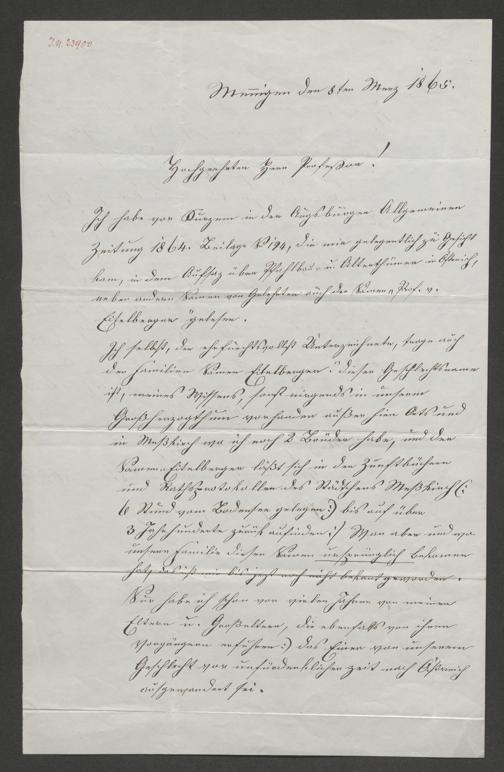 I.N. 23900
Menningen den 8ten Merz 1865.
Hochgeehrter Herr Professor!
Ich habe vor Kurzem in der Augsburger Allgemeinen
Zeitung 1864. Beilage N 194, die mir gelegentlich zu Gesicht
kam, in dem Aufsaz über Pfahlbau- u. Alterthümer in Östreich,
neber andern Namen von Gelehrten auch den Namen „Prof. v.
Eitelberger" gelesen.
Ich selbst, der ehrfurchtsvollst Unterzeichnete, trage auch
den Familien Namen Eitelberger: dieser Geschlechtsname
ist, meines Wissens, sonst nirgends in unserm
Großherzogthum vorhanden außer hier Orts und
in Meßkirch wo ich noch 2 Brüder habe, und der
Namen Eitelberger läßt sich in den Zunftbüchern
und Rathsprotokollen des Städtchens Meßkirch (:
6 Stund vom Bodensee gelegen:) bis auf über
3 Jahrhunderte zurük auffinden:/ Wan aber und wo
unsere Familie diesen Namen ursprünglich bekamen
hat, das ist mir bis jezt noch nicht bekant geworden.
Nur habe ich schon vor vielen Jahren von meinen
Eltern u. Großeltern, die ebenfalls von ihren
Vorgängern erfuhren:) das Einer von unserem
Geschlecht vor unfürdenklicher Zeit nach Östreich
ausgewandert sei.